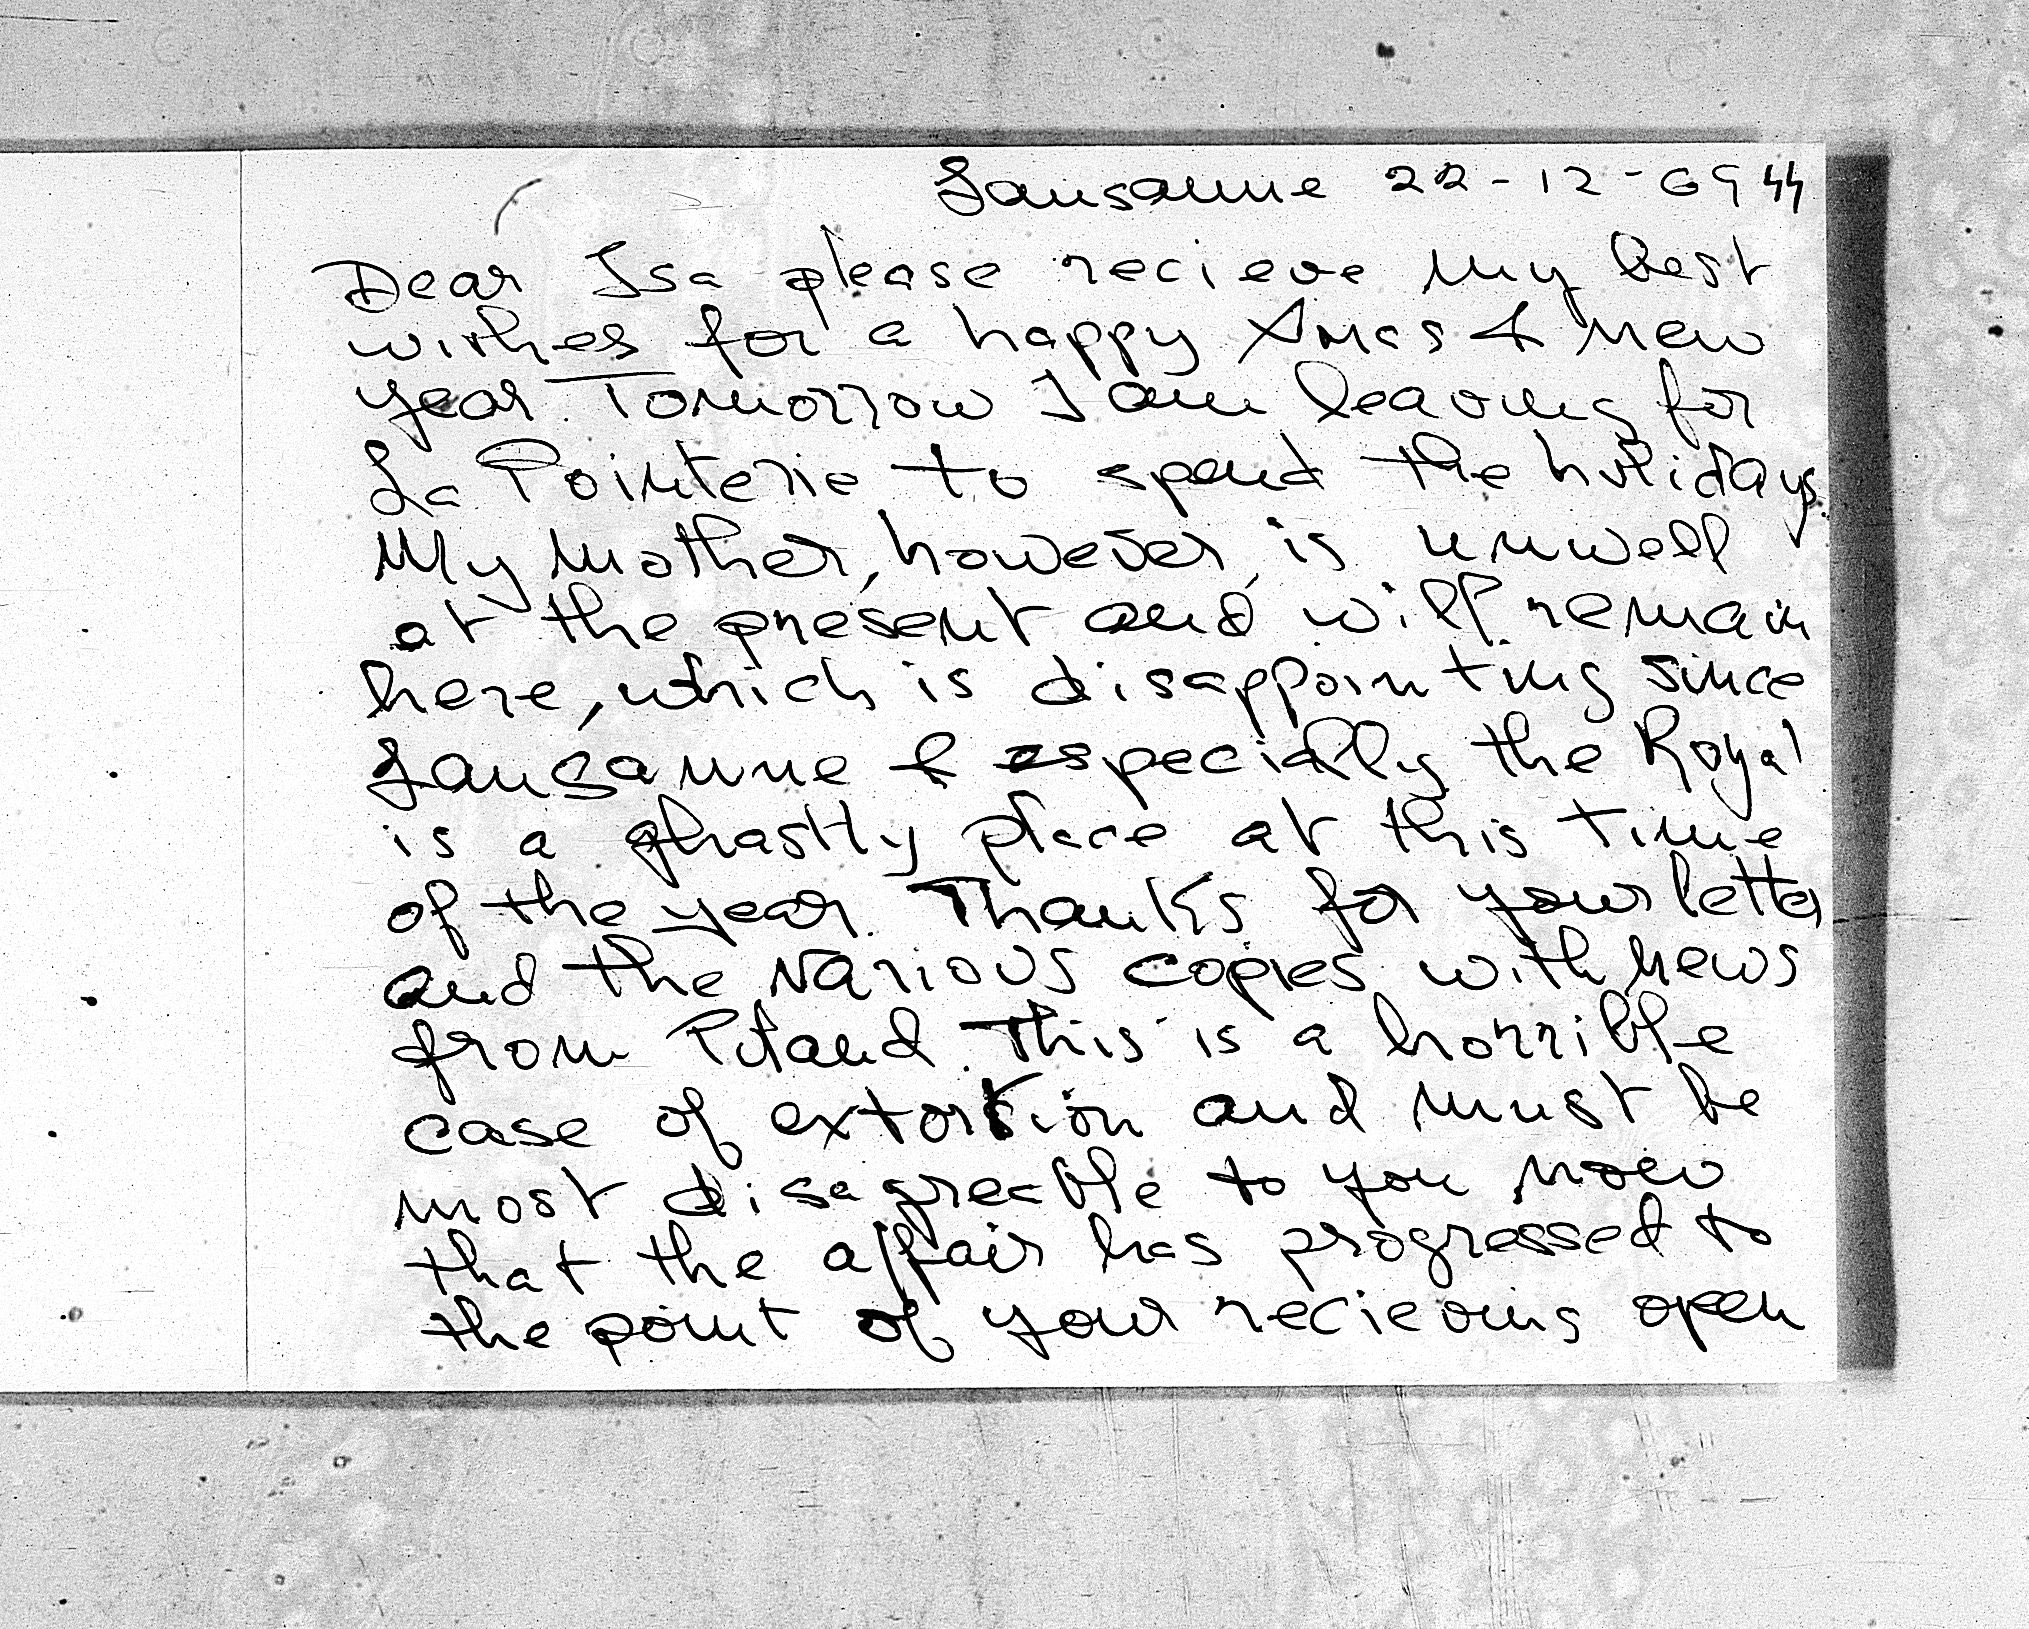 Lausanne 22-12-69 44
Dear Isa please recieve my best
wishes for a happy Xmas & New
year. Tomorrow I am leaving for
La Pointerie to spend the holidays.
My mother, however, is unwell
at the present and will remain
here, which is disappointing since
Lausanne & especially the Royal
is a ghastly place at this time
of the year. Thanks for your letter
and the various copies with news
from This is a horrible
case of extortion and must be
most disagreable to you now
that the affair has progressed to
the point of your recieving open